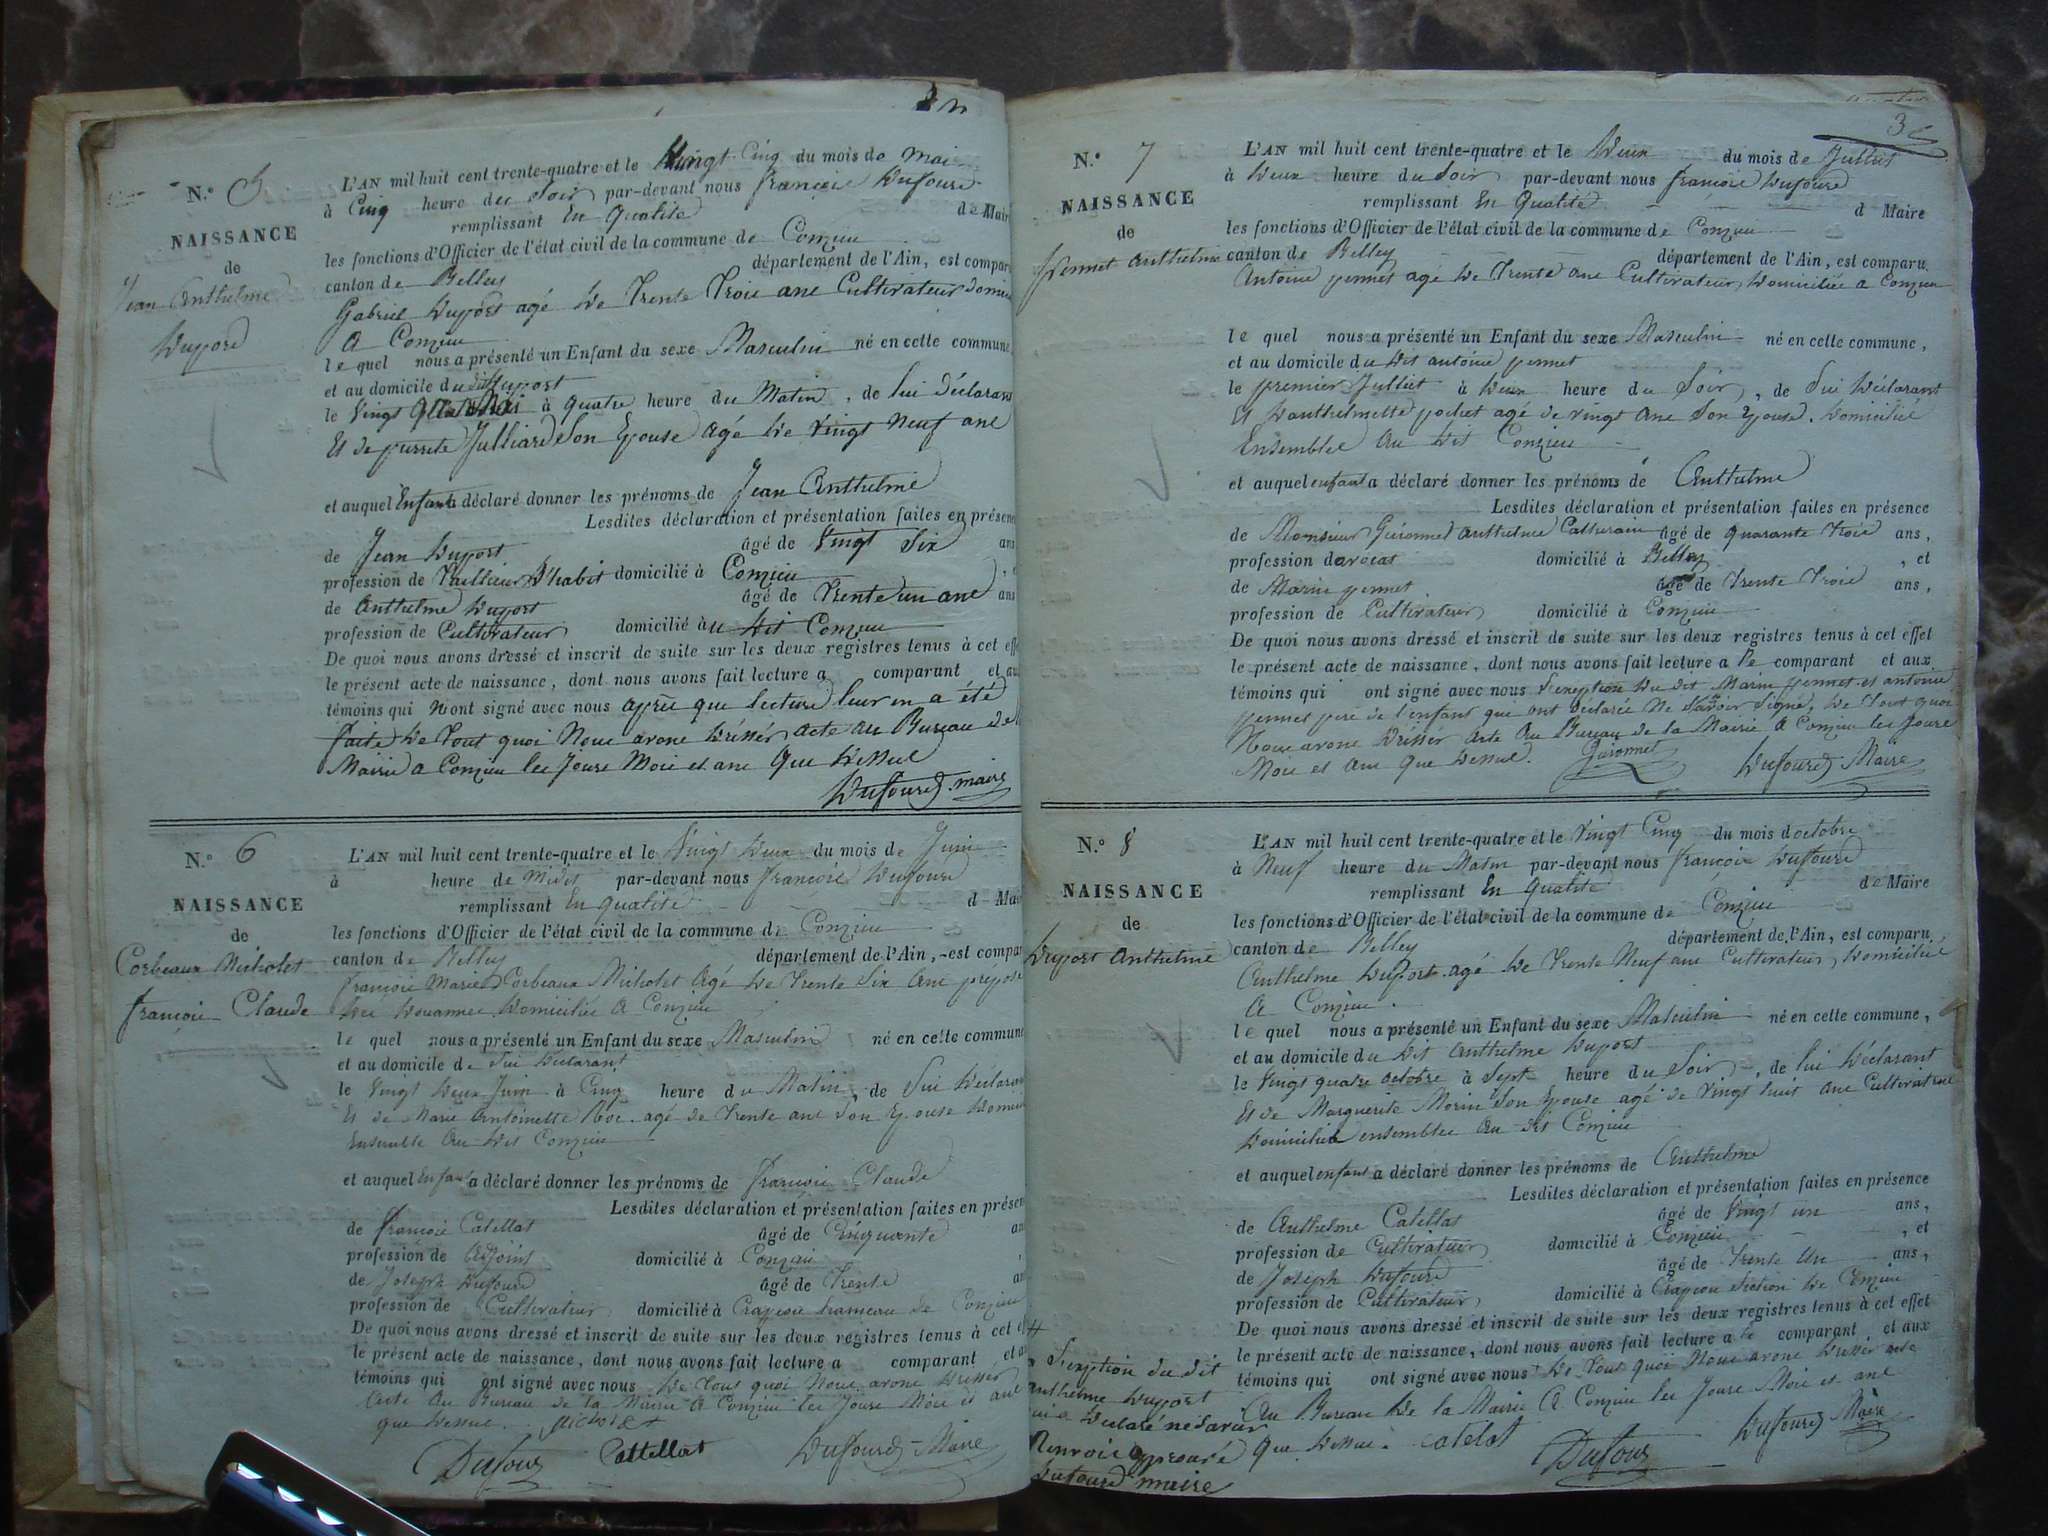 N.° 5
NAISSANCE
de
Jean Anthelme
Dupord
L'AN mil huit cent trente-quatre et le Vingt Cinq du mois de Mai
à Cinq heure du Soir par-devant nous françois Dufourd
remplissant En qualité de Maire
les fonctions d'Officier de l'état civil de la commune de Conzieu
canton de Belley département de l'Ain, est comparu
Gabriel Duport agé de Trente Trois ans Cultivateur Domici
A Conzieu
le quel nous a présenté un Enfant du sexe Masculin né en cette commune,
et au domicile du dit Duport
le Vingt Mai à quatre heure du Matin, de lui déclarant
Et de pierrette Julliard Son Epouse agé de Vingt Neuf ans
et auquel Enfant a déclaré donner les prénoms de Jean Anthelme
Lesdites déclaration et présentation faites en présence
de Jean Duport âgé de Vingt Six ans
profession de Taillieur D'habit domicilié à Conzieu
de Anthelme Duport âgé de Trente un ans ans
profession de Cultivateur domicilié àu dit Conzieu
De quoi nous avons dressé et inscrit de suite sur les deux registres tenus à cet effet
le présent acte de naissance, dont nous avons fait lecture a comparant et aux
témoins qui Nont signé avec nous après que lecture leur en a été
faite De Tout quoi Nous avons Dressér acte au Bureau de
Mairie a Conzieu les Jours Mois et ans Que Dessus
Dufourd maire
N.° 6
NAISSANCE
de
Corbeaux Micholet
françois Claude
L'AN mil huit cent trente-quatre et le Vingt Deux du mois de Juin
à heure de Midit par-devant nous françois Dufourd
remplissant En qualité d Maire
les fonctions d'Officier de l'état civil de la commune de Conzieu
canton de Belley département de l'Ain, est comparu
françois Marie Corbeaux Micholet Agé De Trente Six Ans preposé
Des Douannes Domicilié A Conzieu
le quel nous a présenté un Enfant du sexe Masculin né en cette commune
et au domicile de Lui Déclarant
le Vingt Deux Juin à Cinq heure du Matin, de Lui Déclarant
Et de Marie Antoinette Roc agé de Trente ans Son Epouse Domici
Ensemble Au Dit Conzieu
et auquel Enfant a déclaré donner les prénoms de françois Claude
Lesdites déclaration et présentation faites en présence
de françois Catellat âgé de Cinquante ans
profession de Adjoint domicilié à Conzieu
de Joseph Dufourd âgé de Trente ans
profession de Cultivateur domicilié à Crapeou hameau de Conzieu
De quoi nous avons dressé et inscrit de suite sur les deux registres tenus à cet effet
le présent acte de naissance, dont nous avons fait lecture a comparant et aux
témoins qui ont signé avec nous De Tout quoi Nous avons Dressér
Acte Au Bureau De la Mairie A Conzieu les Jours Mois et ans
que Dessus. Micholet
Dufour Cattellat Dufourd Maire
3
N.° 7
NAISSANCE
de
Pennet Anthelme
L'AN mil huit cent trente-quatre et le Deux du mois de Julliet
à Deux heure du Soir par-devant nous françois Dufourd
remplissant En Qualité d Maire
les fonctions d'Officier de l'état civil de la commune de Conzieu
canton de Belley département de l'Ain, est comparu
Antoine pennet agé de Trente ans Cultivateur Domicilié a Conzieu
le quel nous a présenté un Enfant du sexe Masculin né en cette commune,
et au domicile du Dit antoine pennet
le premier Julliet à Deux heure du Soir, de Lui Déclarant
Et Danthelmette pochet agé de vingt ans Son Epouse Domicilié
Ensemble Au Dit Conzieu
et auquel enfant a déclaré donner les prénoms de Anthelme
Lesdites déclaration et présentation faites en présence
de Monsieur Guironnet Anthelme Catherain âgé de quarante Trois ans,
profession davocat domicilié à Belley, et
de Marin pennet âgé de Trente Trois ans,
profession de Cultivateur domicilié à Conzieu
De quoi nous avons dressé et inscrit de suite sur les deux registres tenus à cet effet
le présent acte de naissance, dont nous avons fait lecture a Le comparant et aux
témoins qui ont signé avec nous L'exeption Du dit Marin pennet et antoine
pennet pere de l'enfant qui ont declarée Ne Savoir Signé, De Tout quoi
Nous avons Dressér Acte Au Bureau De la Mairie A Conzieu les Jours
Mois et Ans Que Dessus. Guironnet Dufourd Maire
N.° 8
NAISSANCE
de
Duport Anthelme
L'AN mil huit cent trente-quatre et le Vingt Cinq du mois doctobre
à Neuf heure du Matin par-devant nous françois Dufourd
remplissant En Qualité de Maire
les fonctions d'Officier de l'état civil de la commune de Conzieu
canton de Belley département de l'Ain, est comparu
Anthelme Duport agé De Trente Neuf ans Cultivateur Domicilié
A Conzieu
le quel nous a présenté un Enfant du sexe Masculin né en cette commune,
et au domicile du Dit Anthelme Duport
le Vingt quatre octobre à Sept heure du Soir, de Lui Déclarant
Et de Marguerite Morin Son Epouse agé de Vingt huit ans Cultivatrice
Domicilié ensembles Au dit Conzieu
et auquel enfant a déclaré donner les prénoms de Anthelme
Lesdites déclaration et présentation faites en présence
de Anthelme Catellat âgé de Vingt un ans,
profession de Cultivateur domicilié à Conzieu, et
de Joseph Dufourd âgé de Trente Un ans,
profession de Cultivateur domicilié à Crapeou section de Conzieu
De quoi nous avons dressé et inscrit de suite sur les deux registres tenus à cet effet
le présent acte de naissance, dont nous avons fait lecture a le comparant, et aux
témoins qui ont signé avec nous De Tout quoi Nous avons Dressér acte
Au Bureau De la Mairie A Conzieu les Jours Mois et ans
Que Dessus. Catelat Dufour Dufourd Maire
a L'exeption du dit
Anthelme Duport
qui a Declaré ne Savoir
Renvoie approuvé
Dufourd maire